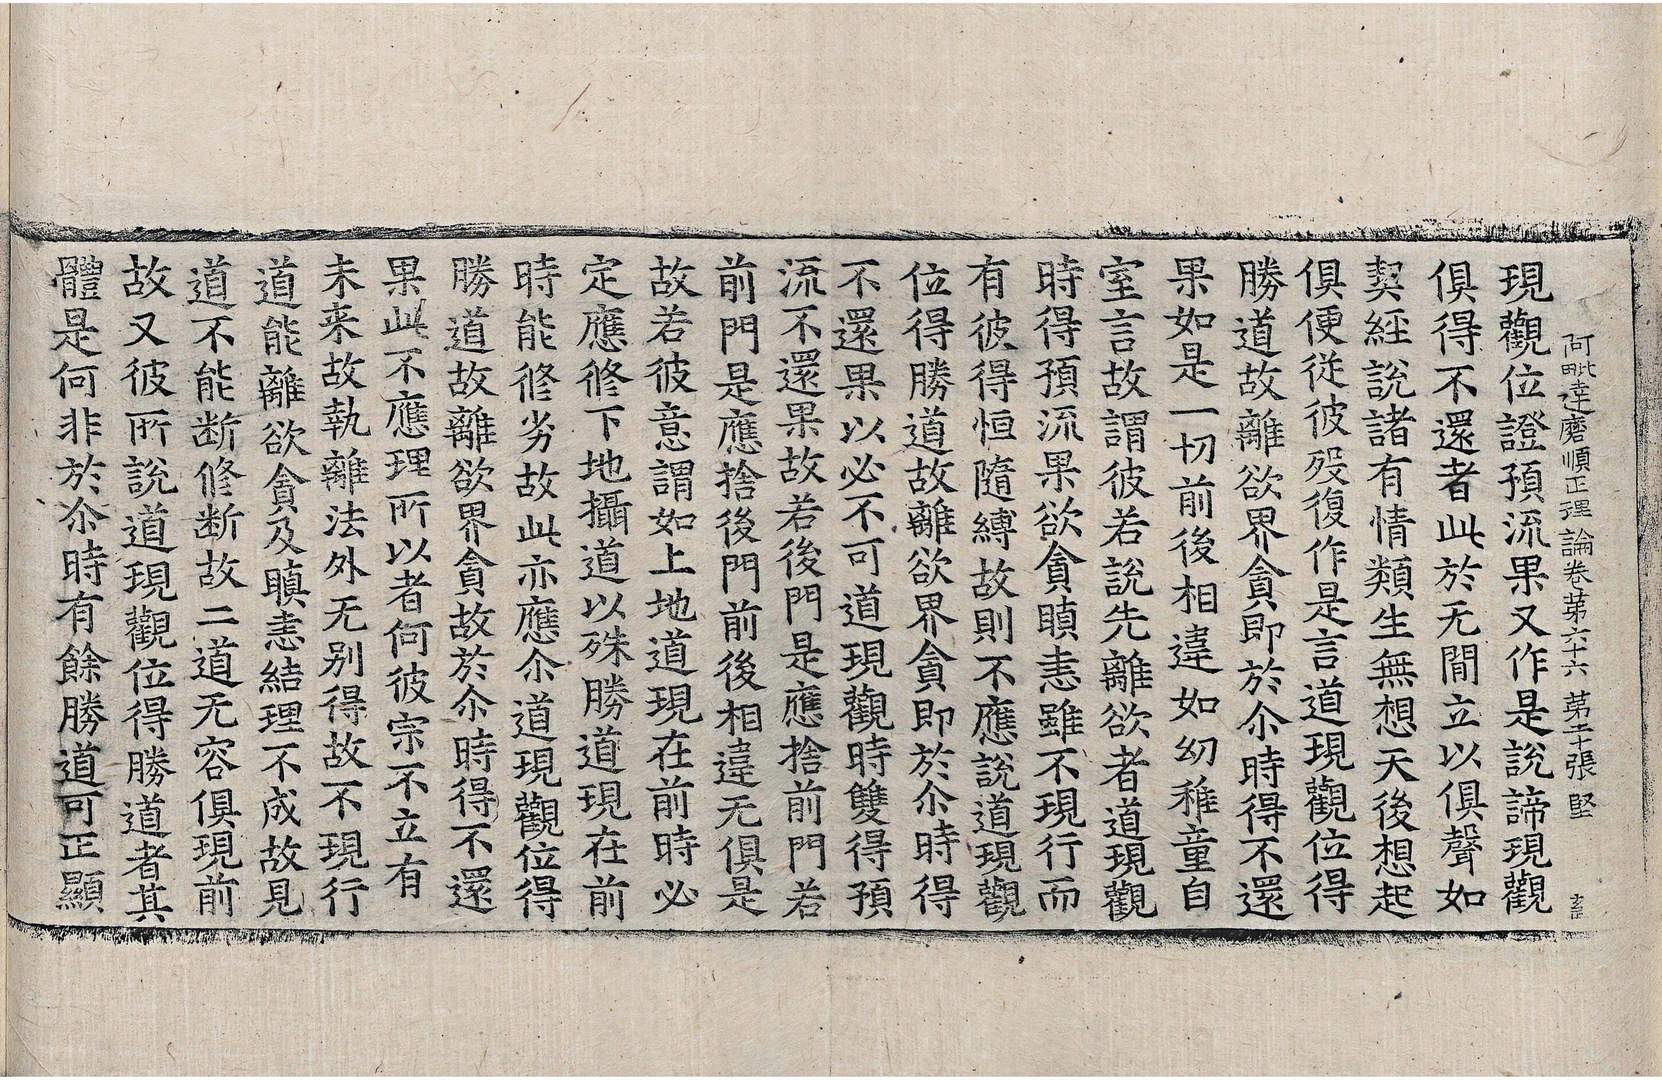 阿毗達磨順正理論卷苐六十六 苐二十張 堅
現觀位證預流果又作是說諦現觀
俱得不還者此於无間立以俱聲如
契經說諸有情類生無想天後想起
俱便従彼殁復作是言道現觀位得
勝道故離欲界貪即於尒時得不還
果如是一切前後相違如幼稚童自
室言故謂彼若說先離欲者道現觀
時得預流果欲貪瞋恚雖不現行而
有彼得恒隨縛故則不應說道現觀
位得勝道故離欲界貪即於尒時得
不還果以必不可道現觀時雙得預
流不還果故若後門是應捨前門若
前門是應捨後門前後相違无俱是
故若彼意謂如上地道現在前時必
定應修下地攝道以殊勝道現在前
時能修劣故此亦應尒道現觀位得
勝道故離欲界貪故於尒時得不還
果此不應理所以者何彼宗不立有
未来故執離法外无別得故不現行
道能離欲貪及瞋恚結理不成故見
道不能断修断故二道无容俱現前
故又彼所說道現觀位得勝道者其
體是何非於尒時有餘勝道可正顯